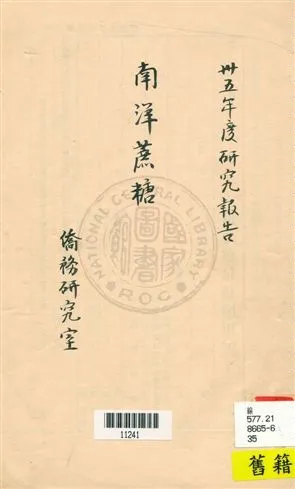 卅五年度研究報告
南洋蔗糖
僑務研究室
NATIONAL CENTRAL LIBRARY
國家圖書館
ROC
11241
577.21
8665-6
35
舊籍